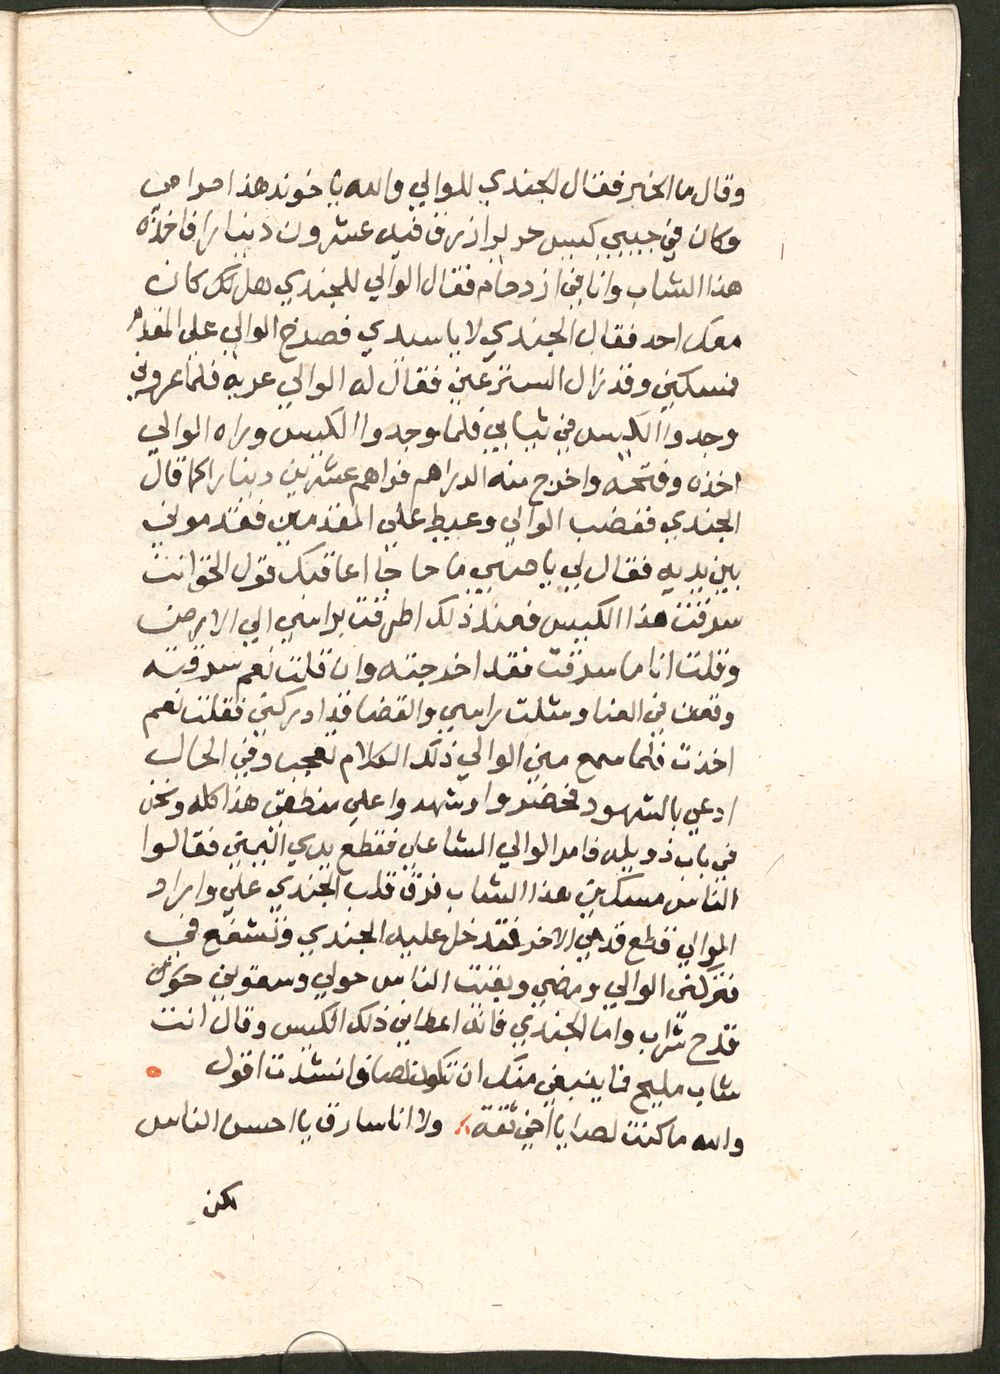 وقال ما الخبر فقال الجندي للوالي والله يا خوند هذا حرامي
وكان في جيبي كيس حرير ازرق فيه عشرون دينارا فاخذه
هذا الشاب وانا في ازدحام فقال الوالي للجندي هل لك كان
معك احد فقال الجندي لا يا سيدي فصرخ الوالي على المقدم
فمسكني وقد زال الستر عني فقال له الوالي عريه فلما عروني
وجدوا الكيس في ثيابي فلما وجدوا الكيس وراه الوالي
اخذه وفتحه واخرج منه الدراهم فراهم عشرين دينارا كما قال
الجندي فغضب الوالي وعيط على المقدمين فقدموني
بين يديه فقال لي يا صبي ما حاجا اعاقبك قول الحق انت
سرقت هذا الكيس فعند ذلك اطرقت براسي الي الارض
وقلت انا ما سرقت فقد اخرجته وان قلت نعم سرقته
وقعت في العنا وشلت راسي والقضا قد ادركني فقلت نعم
اخذت فلما سمع مني الوالي ذلك الكلام تعجب وفي الحال
ادعي بالشهود فحضروا وشهدوا علي منطقي هذا كله ونحن
في باب زويله فامر الوالي المشاعلي فقطع يدي اليمين فقالوا
الناس مسكين هذا الشاب فرق قلب الجندي علي واراد
الوالي قطع قدمي الاخر فقد خل عليه الجندي وتشفع في
فتركني الوالي ومضي وبقيت الناس حولي وسقوني
قدح شراب واما الجندي فانه اعطاني ذلك الكيس وقال انت
شاب مليح فما ينبغي منك ان تكون لصا فانشدت اقول
والله ما كنت لصا يا اخي ثقة ولا انا سارق يا احسن الناس
لكن